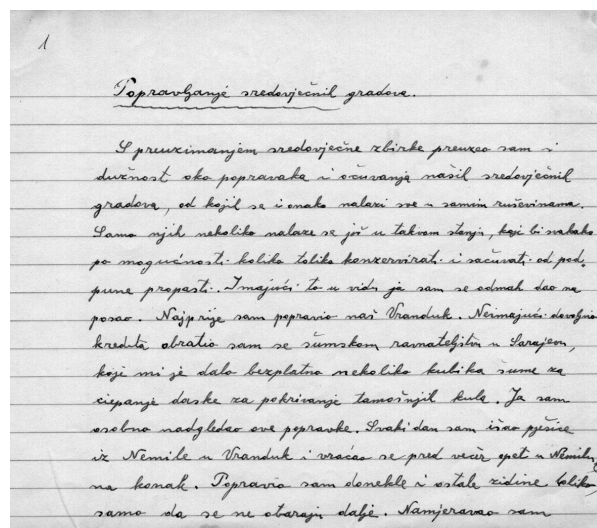 1
Popravljanje sredovječnih gradova.
S preuzimanjem sredovječne zbirke preuzeo sam i
dužnost oko popravaka i očuvanja naših sredovječnih
gradova, od kojih se i onako nalazi sve u samim ruševinama.
Samo njih nekoliko nalaze se još u takvom stanju, koje bi svakako
po mogućnosti koliko toliko konzervirati i sačuvati od pod,
pune propasti. Imajući to u vidu ja sam se odmah dao na
posao. Najprije sam popravio naš Vranduk. Neimajući dovoljno
kredita obratio sam se šumskom ravnateljstvu u Sarajevu,
koje mi je dalo bezplatno nekoliko kubika šume za
ciepanje daske za pokrivanje tamošnjih kula. Ja sam
osobno nadgledao ove popravke. Svaki dan sam išao pješice
iz Nemile u Vranduk i vraćao se pred večer opet u Nemilu
na konak. Popravio sam donekle i ostale zidine toliko,
samo da se ne obaraju dalje. Namjeravao sam